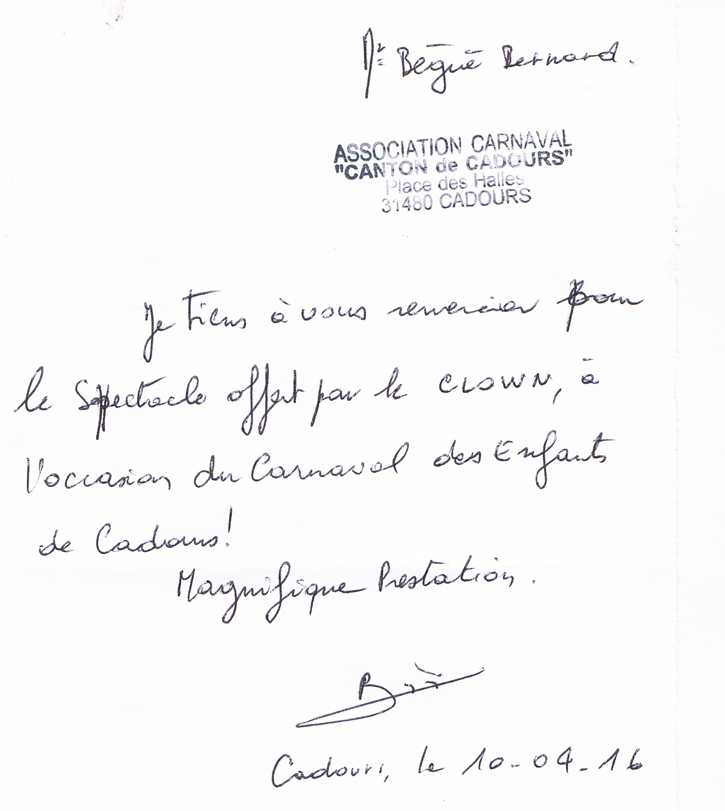 Mr Bégué Bernard.
ASSOCIATION CARNAVAL
"CANTON de CADOURS"
Place des Halles
31480 CADOURS
Je tiens à vous remercier pour
le Spectacle offert par le CLOWN, à
l'occasion du Carnaval des Enfants
de Cadours!
Magnifique Prestation.
Cadours, le 10-04-16